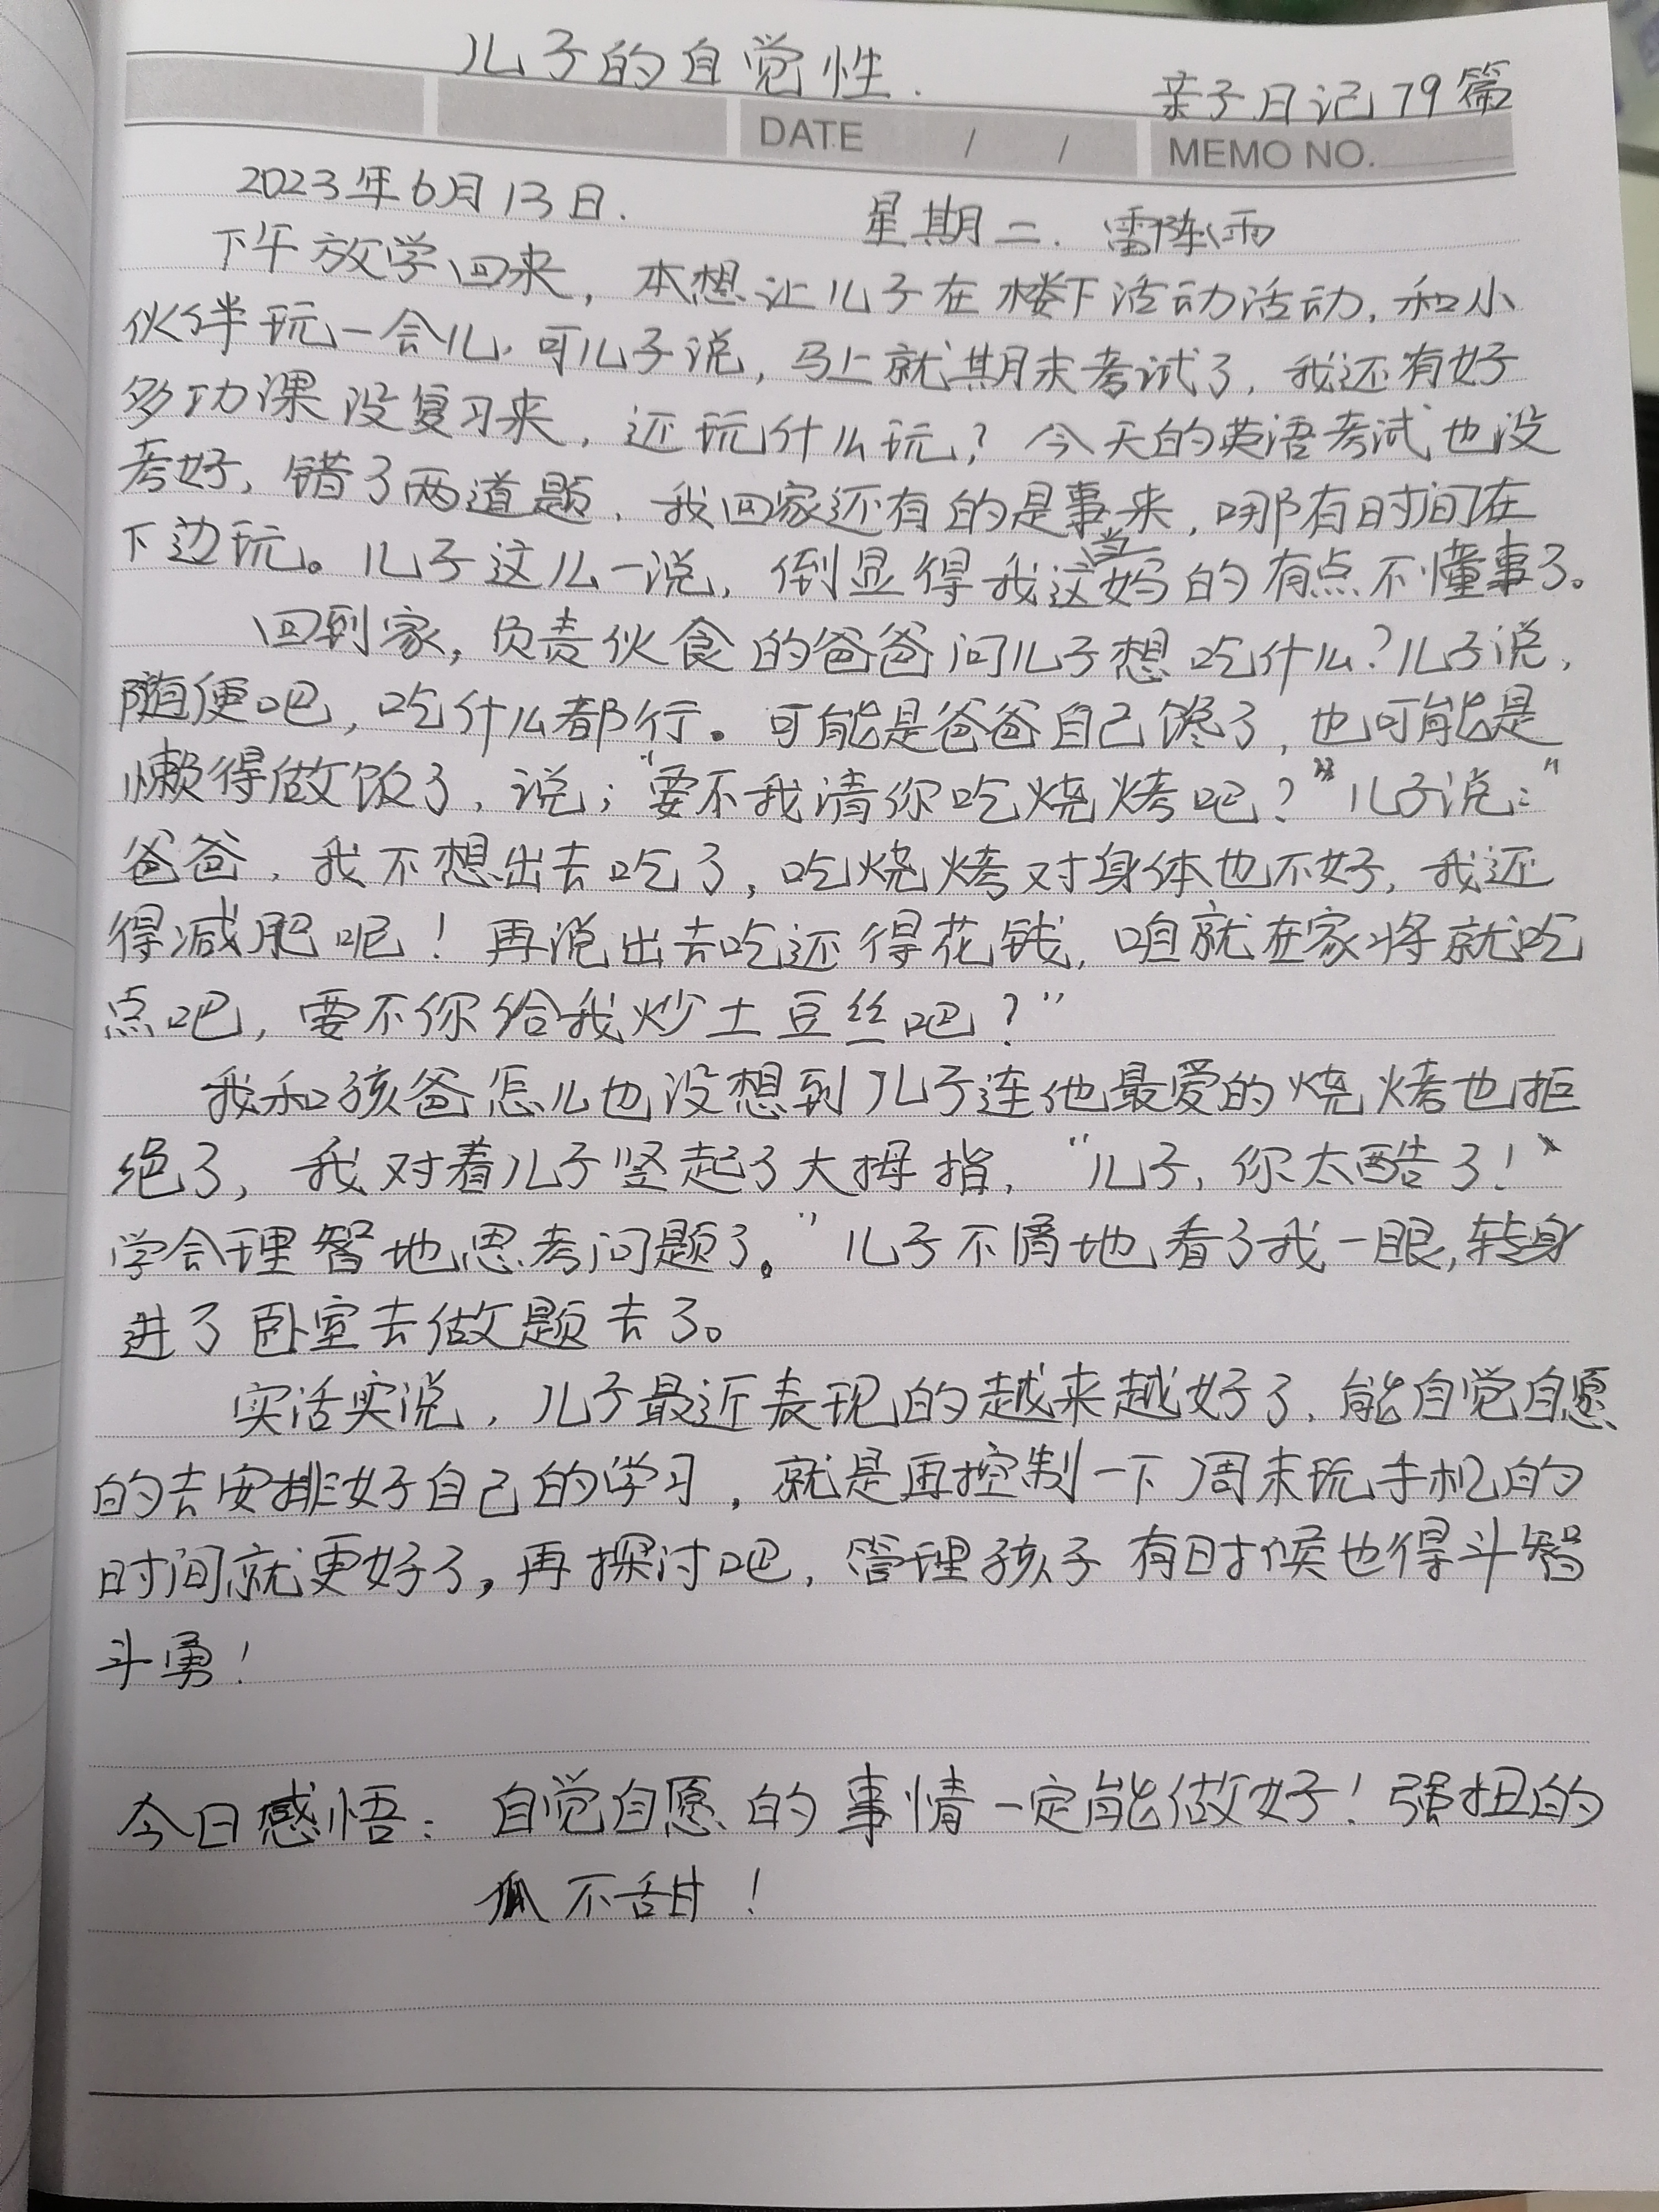 儿子的自觉性.
亲子日记79篇
DATE / /
MEMO NO.
2023年6月13日.
星期二. 雷阵雨
下午放学回来，本想让儿子在楼下活动活动，和小
伙伴玩一会儿，可儿子说，马上就期末考试了，我还有好
多功课没复习来，还玩什么玩？今天的英语考试也没
考好，错了两道题，我回家还有的是事来，哪有时间在
下边玩。儿子这么一说，倒显得我这当妈的有点不懂事了。
回到家，负责伙食的爸爸问儿子想吃什么？儿子说，
随便吧，吃什么都行。可能是爸爸自己馋了，也可能是
懒得做饭了，说；“要不我请你吃烧烤吧？”儿子说：“
爸爸，我不想出去吃了，吃烧烤对身体也不好，我还
得减肥呢！再说出去吃还得花钱，咱就在家将就吃
点吧，要不你给我炒土豆丝吧？”
我和孩爸怎么也没想到儿子连他最爱的烧烤也拒
绝了，我对着儿子竖起了大拇指，“儿子，你太酷了！”
学会理智地思考问题了。”儿子不屑地看了我一眼，转身
进了卧室去做题去了。
实话实说，儿子最近表现的越来越好了，能自觉自愿
的去安排好自己的学习，就是再控制一下周末玩手机的
时间就更好了，再探讨吧，管理孩子有时候也得斗智
斗勇！
今日感悟：自觉自愿的事情一定能做好！强扭的
瓜不甜！